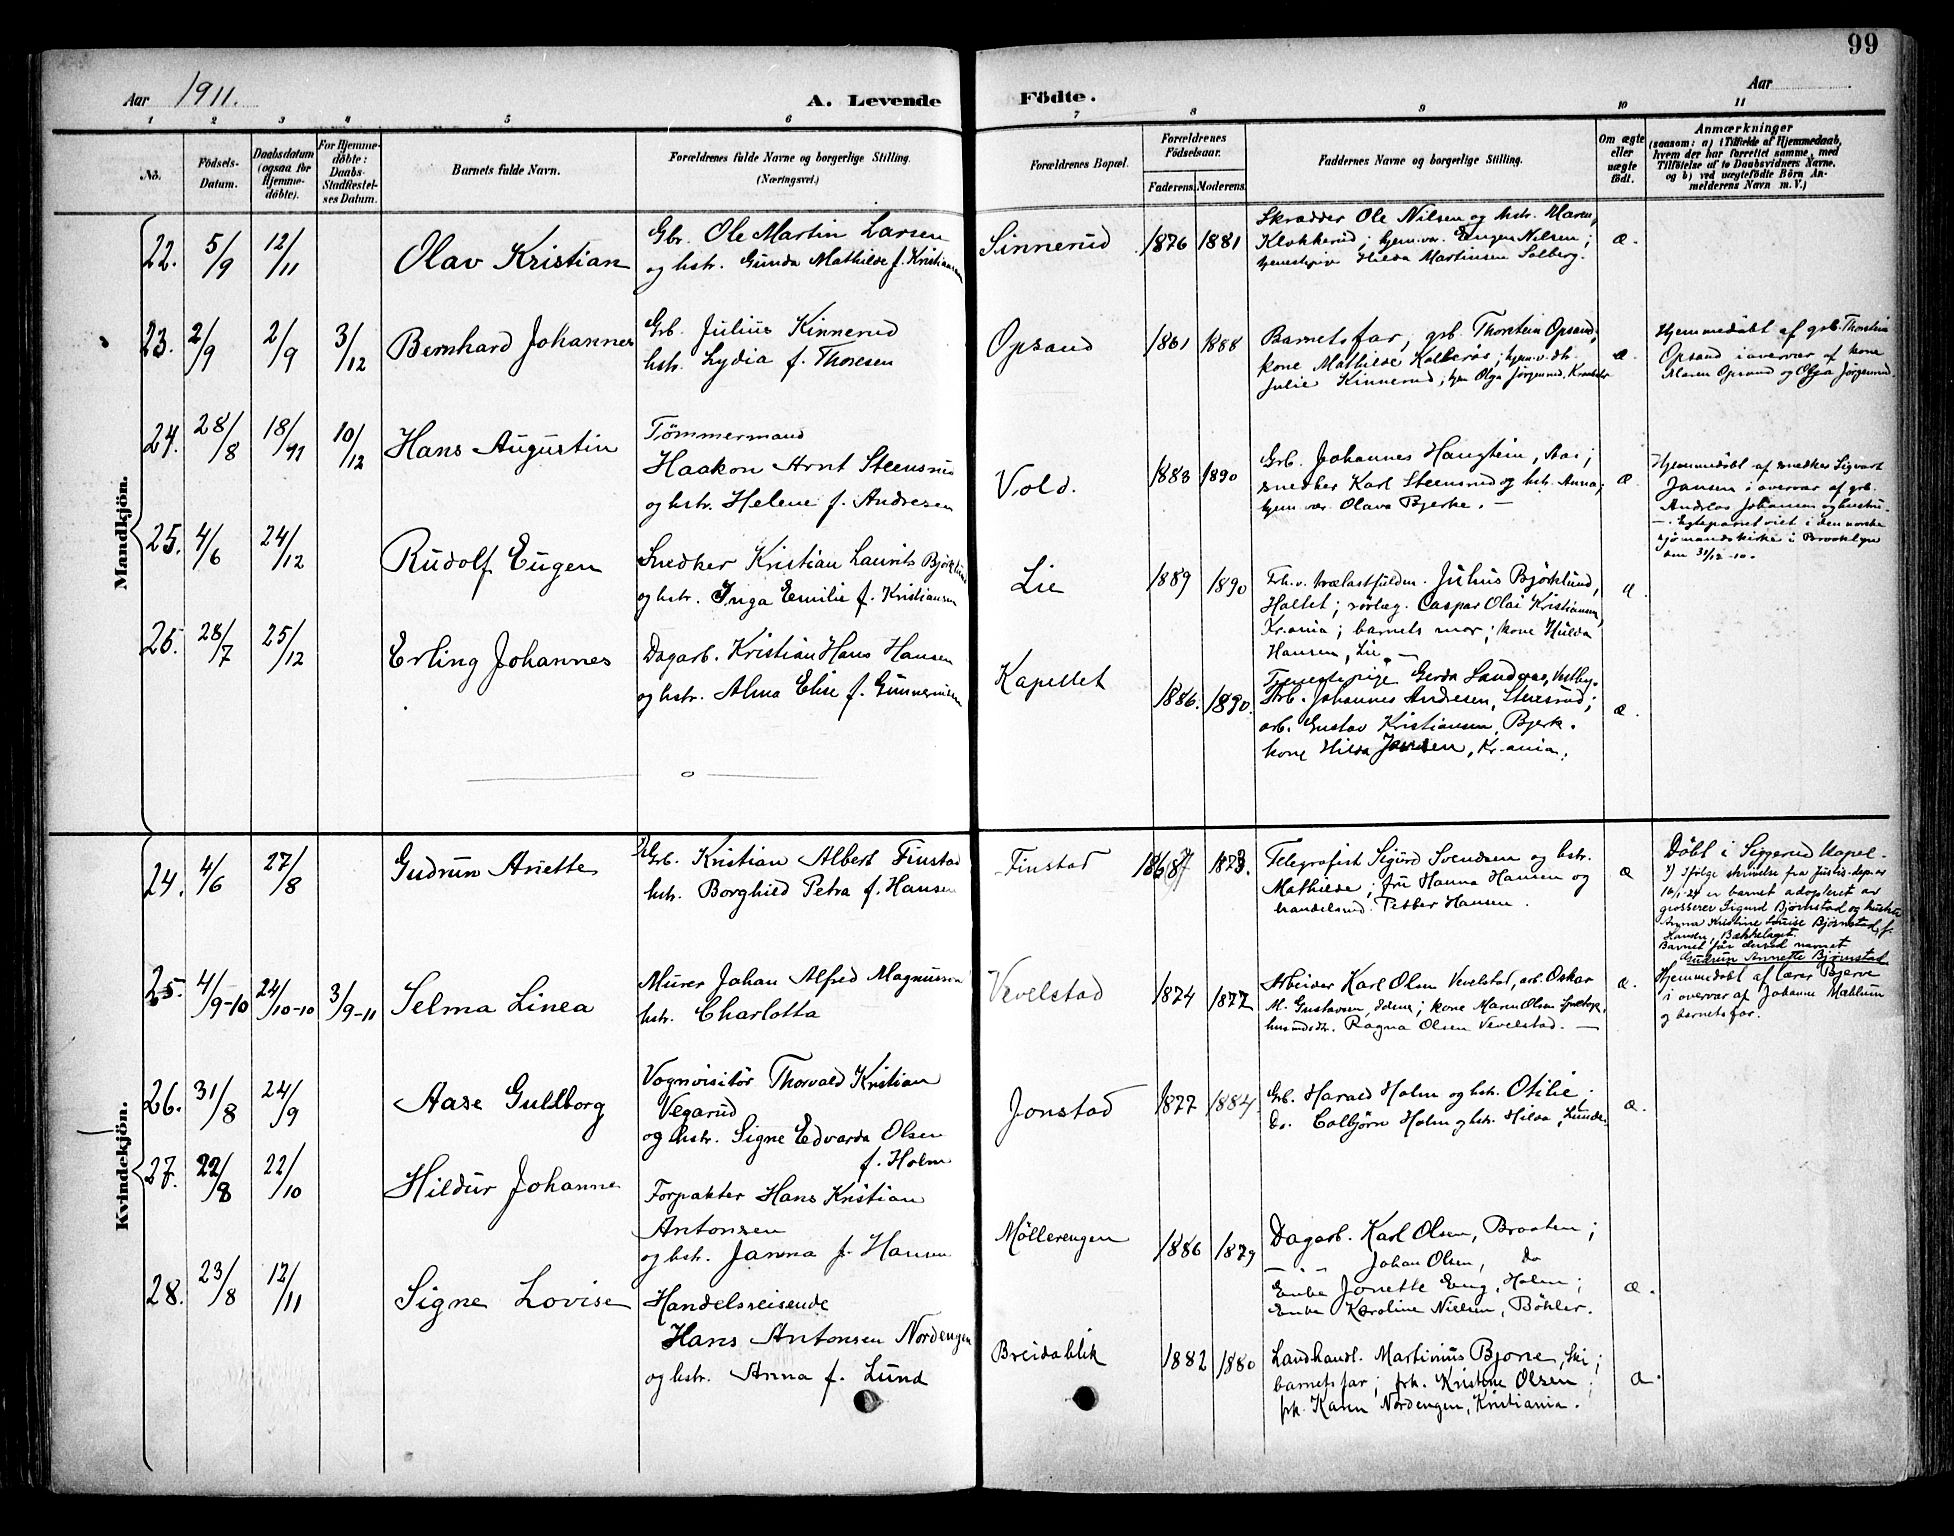 99
Aar 1911.
A. Levende Födte.
Aar
1 2 3 4 5 6 7 8 9 10 11
No.
Födsels-Datum.
Daabsdatum (ogsaa for Hjemme-döbte).
For Hjemme-döbte: Daabs-Stadfæstel-ses Datum.
Barnets fulde Navn.
Forældrenes fulde Navne og borgerlige Stilling. (Næringsvei.)
Forældrenes Bopæl.
Forældrenes Födselsaar.
Faderens. Moderens.
Faddernes Navne og borgerlige Stilling.
Om ægte eller uægte födt.
Anmærkninger
(saasom: a) i Tilfælde af Hjemmedaab, hvem der har forrettet samme, med Tilföielse af to Daabsvidners Navne, og b) ved uægtefödte Börn An-melderens Navn m. V.)
Mandkjön.
22. 5/9 12/11 Olav Kristian
Gbr. Ole Martin Larsen
og hstr. Gunda Mathilde f. Kristiansen
Sinnerud 1876 1881
Skrædder Ole Nilsen og hstr. Maren,
Klokkerud; hjem.vær. Eugen Nilsen;
tjenestepige Hilda Martinsen Solberg.
æ.
23. 2/9 2/9 3/12 Bernhard Johannes
Grb. Julius Kinnerud
hstr. Lydia f. Thoresen
Opsand 1861 1888
Barnets far, grb. Thorstein Opsand,
kone Mathilde Kolberøs; hjem.v. dtr.
Julie Kinnerud; hjm Olga Jørgensrud, Kraakstad
æ
Hjemmedøbt af grb. Thorstein
Opsand i overvær af kone
Maren Opsand og Olga Jørgensrud.
24. 28/8 18/11 10/12 Hans Augustin
Tømmermand
Haakon Arnt Steensrud
og hstr. Helene f. Andresen
Vold. 1883 1890
Grb. Johannes Haugstein, Aas;
snedker Karl Steensrud og hstr. Anna;
hjem.vær. Olava Bjerke. —
æ.
Hjemmedøbt af snedker Sigvart
Jansen i overvær af grb.
Andreas Johansen og hustru
— Egteparret viet i den norske
sjømandskirke i Brooklyn
den 31/12-10.
25. 4/6 24/12 Rudolf Eugen
Snedker Kristian Laurits Bjørklund
og hstr. Inga Emilie f. Kristiansen
Lie 1889 1890
Frh.v. trælastfuldm. Julius Bjørklund,
Holtet; rørlæg. Caspar Olai Kristiansen,
Kr.ania; barnets mor; kone Hulda
Hansen, Lie. —
æ.
26. 28/7 25/12 Erling Johannes
Dagarb. Kristian Hans Hansen
og hstr. Alma Elise f. Gunnersen
Kapellet 1886. 1890.
Tjenestepige Gerda Sandaas, Vestby.
Arb. Johannes Andresen, Stensrud;
arb. Gustav Kristiansen, Bjerk.
kone Hilda Jensen, Kr.ania.
æ.
Kvindekjön.
24. 4/6 27/8 Gudrun Anette
Grb. Kristian Albert Finstad
hstr. Borghild Petra f. Hansen
Finstad 1867 1873.
Telegrafist Sigurd Svendsen og hstr.
Mathilde; fru Hanna Hansen og
handelsmd. Petter Hansen.
æ
Døbt i Siggerud kapel.
1) Ifølge skrivelse fra Justis.dep. av
16/1-24 er barnet adopteret av
grosserer Sigurd Bjørnstad og hustru
Anna Kristine Louise Bjørnstad, f.
Hansen, Bækkelaget.
Barnet får derved navnet
Gudrun Annette Bjørnstad
25. 4/9-10 24/10-10 3/9-11 Selma Linea
Murer Johan Alfred Magnussen
hstr. Charlotta
Vevelstad 1874 1877
Arbeider Karl Olsen Vevelstad, arb. Oskar
M. Gustavsen, Idem; kone Maren Olsen
husmdsdtr. Ragna Olsen Vevelstad. —
æ.
Hjemmedøbt af lærer Bjerve
i overvær af Johanne Mæhlum
og barnets far.
26. 31/8 24/9 Aase Gulborg
Vognvisitør Thorvald Kristian
Vegarud
og hstr. Signe Edvarda Olsen
f. Holm
Jonstad 1877 1884.
Grb. Harald Holm og hstr. Otilie;
Do. Colbjørn Holm og hstr. Hilda, Lunde.
æ.
27. 22/8 22/10 Hildur Johanne
Forpakter Hans Kristian
Antonsen
og hstr. Janna f. Hansen
Møllerengen 1886 1879
Dagarb. Karl Olsen, Braaten;
— " — Johan Olsen, Do
Enke Jonette Eng, Holm;
Enke Karoline Nielsen, Bøhler.
æ.
28. 23/8 12/11 Signe Lovise
Handelsreisende
Hans Antonsen Nordengen
og hstr. Anna f. Lund
Breidablik 1882 1880
Landhandl. Martinius Bjone, Ski;
barnets far; frk. Kristine Olsen;
frk. Karen Nordengen, Kristiania.
æ.